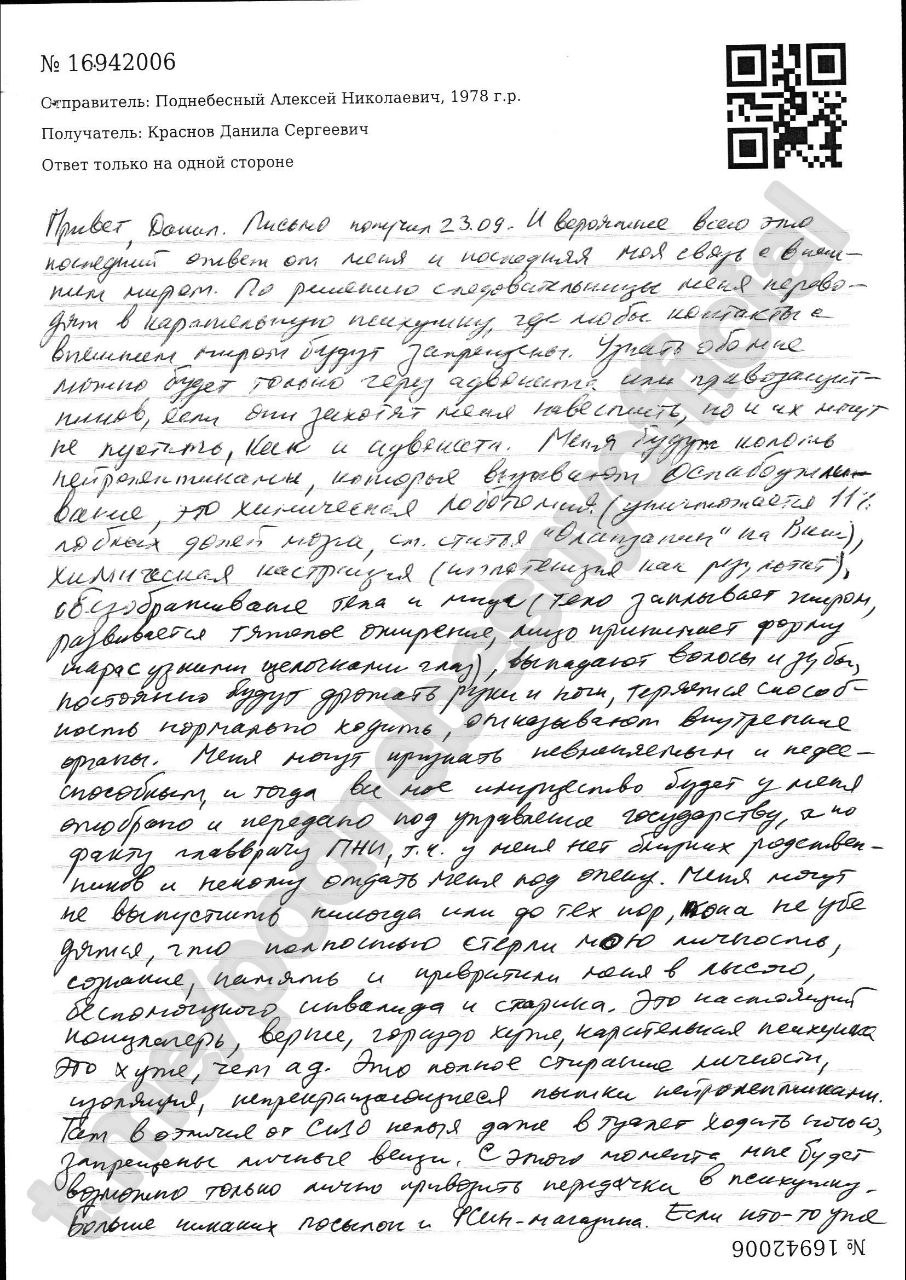 № 16942006
Отправитель: Поднебесный Алексей Николаевич, 1978 г.р.
Получатель: Краснов Данила Сергеевич
Ответ только на одной стороне
Привет, Данил. Письмо получил 23.09. И вероятнее всего это
последний ответ от меня и последняя моя связь с внеш-
ним миром. По решению следовательницы меня перево-
дят в карательную психушку, где любые контакты с
внешнем миром будут запрещены. Узнать обо мне
можно будет только через адвоката или правозащит-
ников, если они захотят меня навестить, но и их могут
не пустить, как и адвоката. Меня будут колоть
нейролептиками, которые вызывают ослабоумли-
вание, это химическая лоботомия. (уничтожается 11%
лобных долей мозга, см. статья "Оланзапин" на Вики),
химическая кастрация (импотенция как результат),
обезображивание тела и лица (тело заплывает жиром,
развивается тяжелое ожирение, лицо принимает форму
шара с узкими щелочками глаз), выпадают волосы и зубы,
постоянно будут дрожать руки и ноги, теряется способ-
ность нормально ходить, отказывают внутренние
органы. Меня могут признать невменяемым и недее-
способным, и тогда все мое имущество будет у меня
отобрано и передано под управление государству, а по
факту главврачу ПНИ, т.к. у меня нет близких родствен-
ников и некому отдать меня под опеку. Меня могут
не выпустить никогда или до тех пор, пока не убе
дятся, что полностью стерли мою личность,
сознание, память и превратили меня в лысого,
беспомощного инвалида и старика. Это настоящий
концлагерь, вернее, гораздо хуже, карательная психушка
это хуже, чем ад. Это полное стирание личности,
изоляция, непрекращающиеся пытки нейролептиками.
Там в отличие от СИЗО нельзя даже в туалет ходить ночью,
запрещены личные вещи. С этого момента мне будет
возможно только лично привозить передачки в психушку.
Больше никаких посылок и ФСИН-магазина. Если кто-то уже
№ 16942006
t.me/podnebesnyofficial